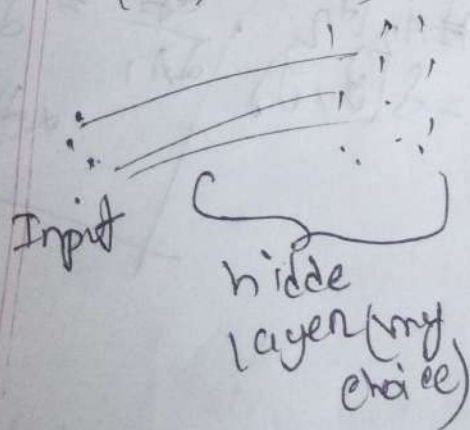 Input
hidde
layer (my
choice)